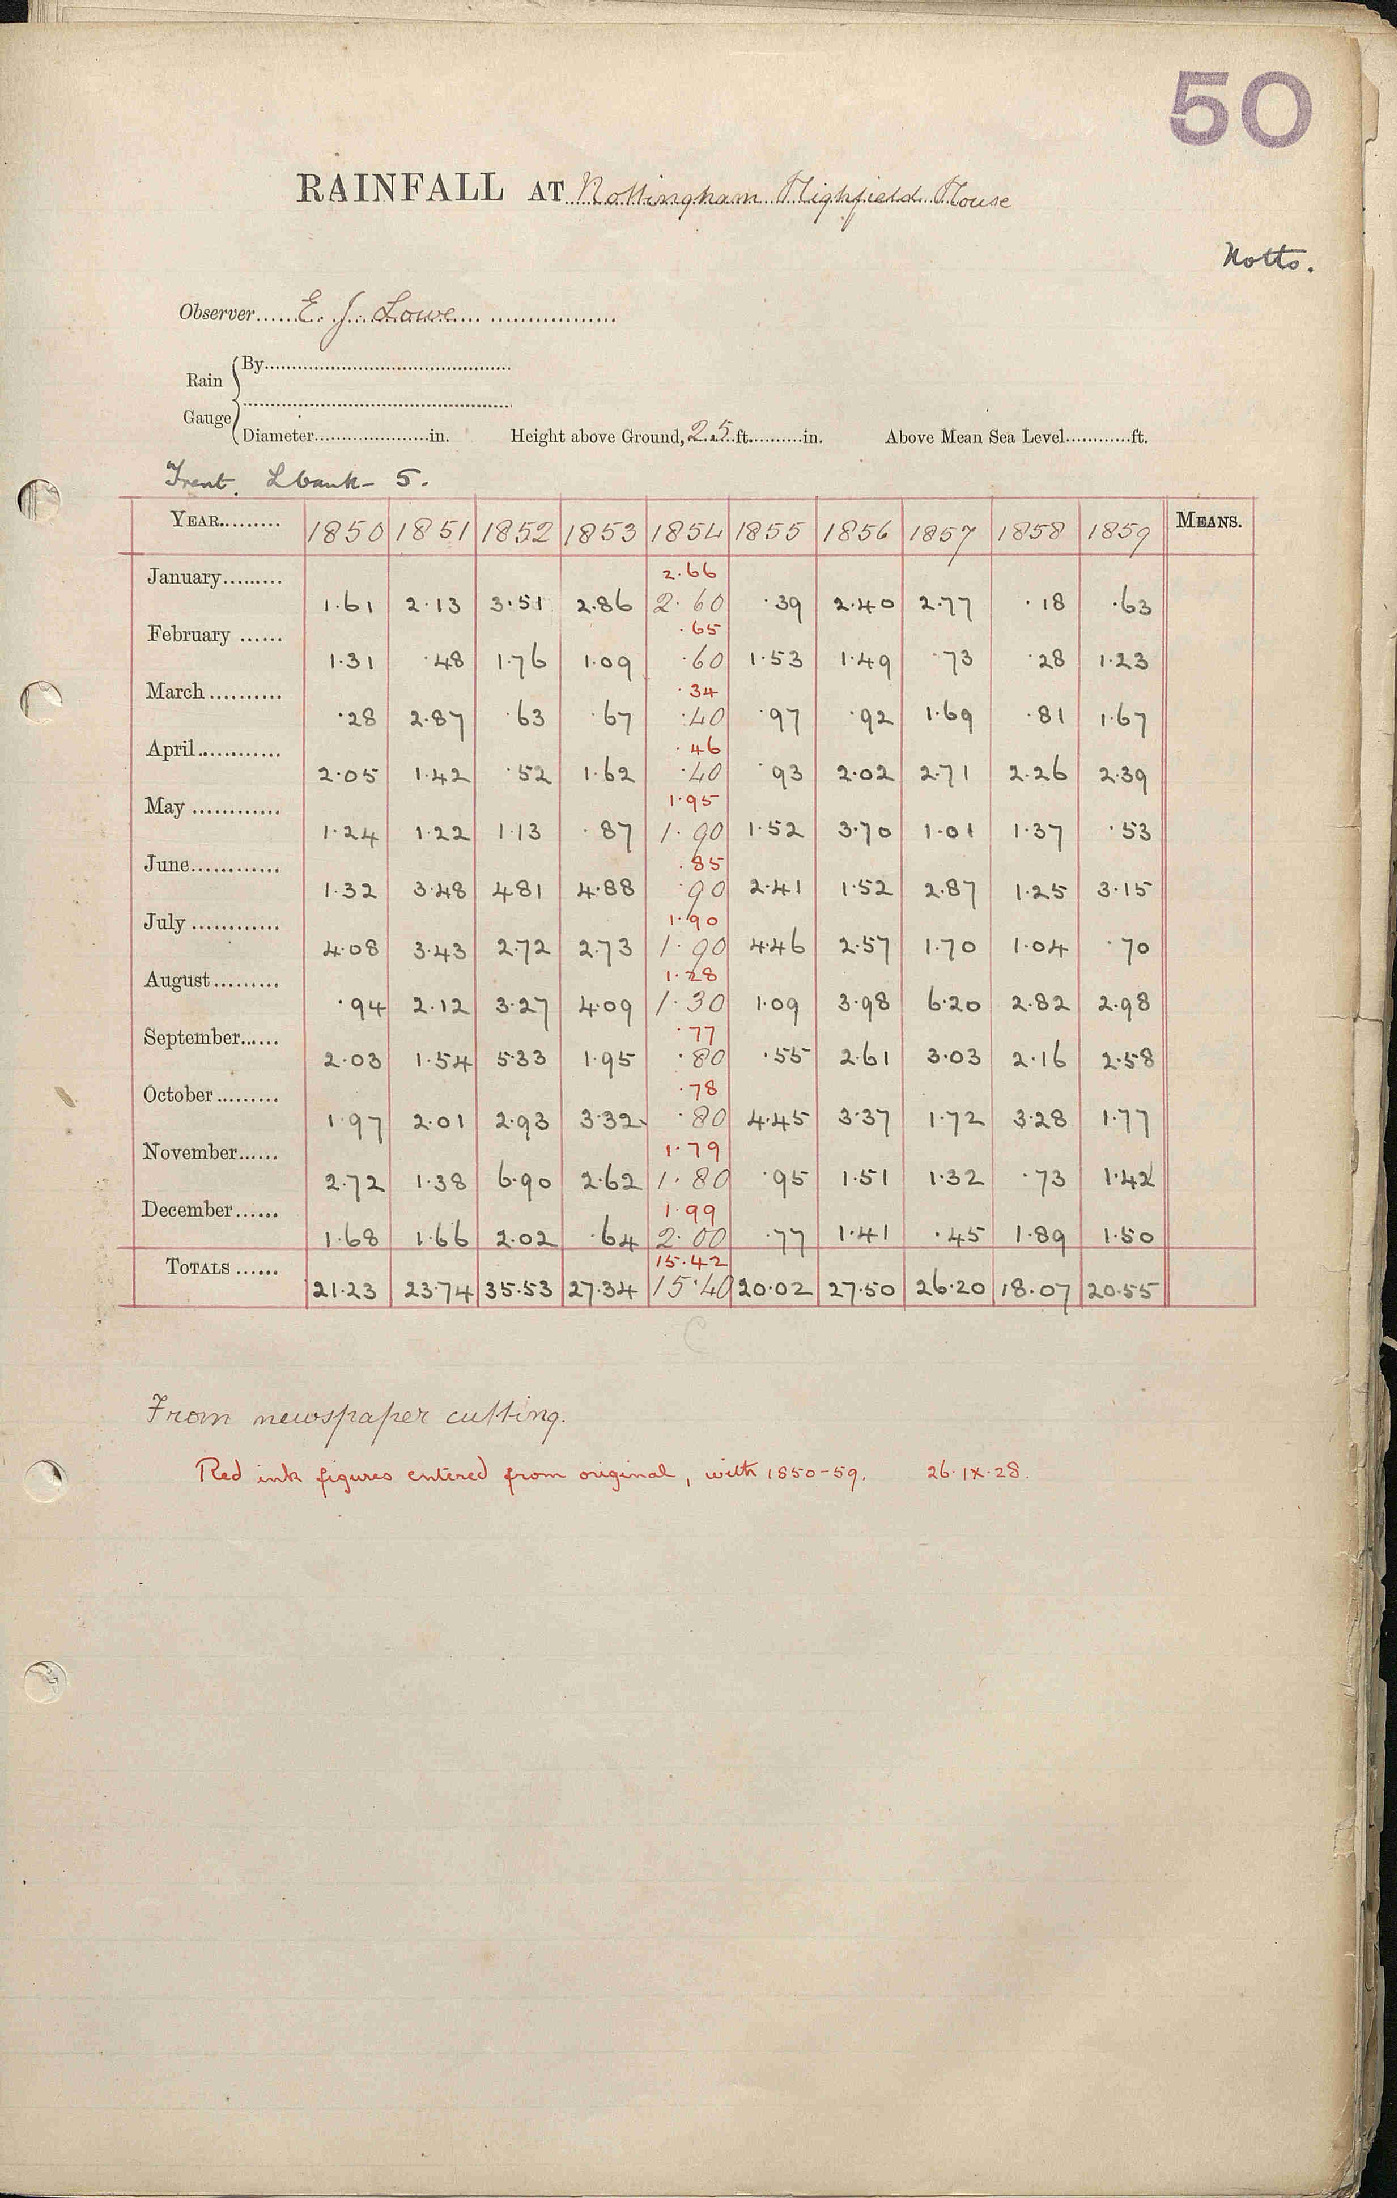 50
RAINFALL AT Nottingham Highfield House
Notts.
Observer......E. J. Lowe..................
Rain Gauge { By..............................
..............................
Diameter....................in. Height above Ground, 25 ft..........in. Above Mean Sea Level............ft.
Trent. L bank - 5.
YEAR......... 1850 1851 1852 1853 1854 1855 1856 1857 1858 1859 MEANS.
January......... 2.66
1.61 2.13 3.51 2.86 2.60 .39 2.40 2.77 .18 .63
February ...... .65
1.31 .48 1.76 1.09 .60 1.53 1.49 .73 .28 1.23
March.......... .34
.28 2.87 .63 .67 .40 .97 .92 1.69 .81 1.67
April............ .46
2.05 1.42 .52 1.62 .40 .93 2.02 2.71 2.26 2.39
May ............ 1.95
1.24 1.22 1.13 .87 1.90 1.52 3.70 1.01 1.37 .53
June............ .85
1.32 3.48 4.81 4.88 .90 2.41 1.52 2.87 1.25 3.15
July ............ 1.90
4.08 3.43 2.72 2.73 1.90 4.46 2.57 1.70 1.04 .70
August......... 1.28
.94 2.12 3.27 4.09 1.30 1.09 3.98 6.20 2.82 2.98
September...... .77
2.03 1.54 5.33 1.95 .80 .55 2.61 3.03 2.16 2.58
October ......... .78
1.97 2.01 2.93 3.32 .80 4.45 3.37 1.72 3.28 1.77
November...... 1.79
2.72 1.38 6.90 2.62 1.80 .95 1.51 1.32 .73 1.42
December...... 1.99
1.68 1.66 2.02 .64 2.00 .77 1.41 .45 1.89 1.50
TOTALS ...... 15.42
21.23 23.74 35.53 27.34 15.40 20.02 27.50 26.20 18.07 20.55
C
From newspaper cutting.
Red ink figures entered from original, with 1850-59. 26.IX.28.